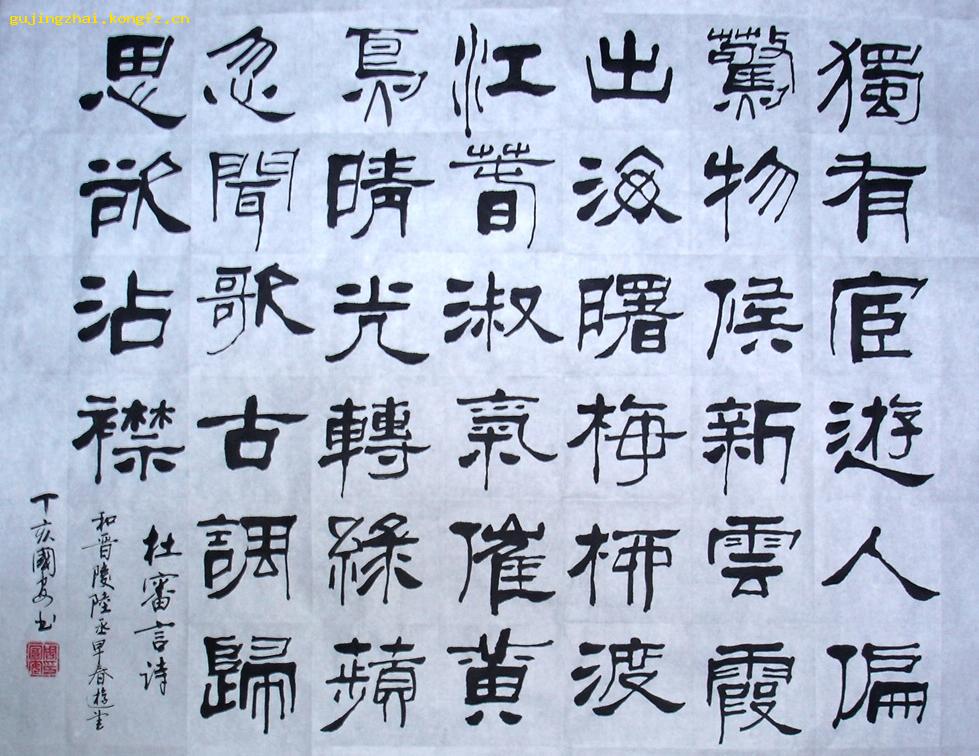 gujingzhai.kongfz.cn
獨有宦遊人偏
驚物候新雲霞
出海曙梅柳渡
江春淑氣催黃
鳥晴光轉綠蘋
忽聞歌古調歸
思欲沾襟
杜審言詩
和晋陵陸丞早春遊望
丁亥國安书